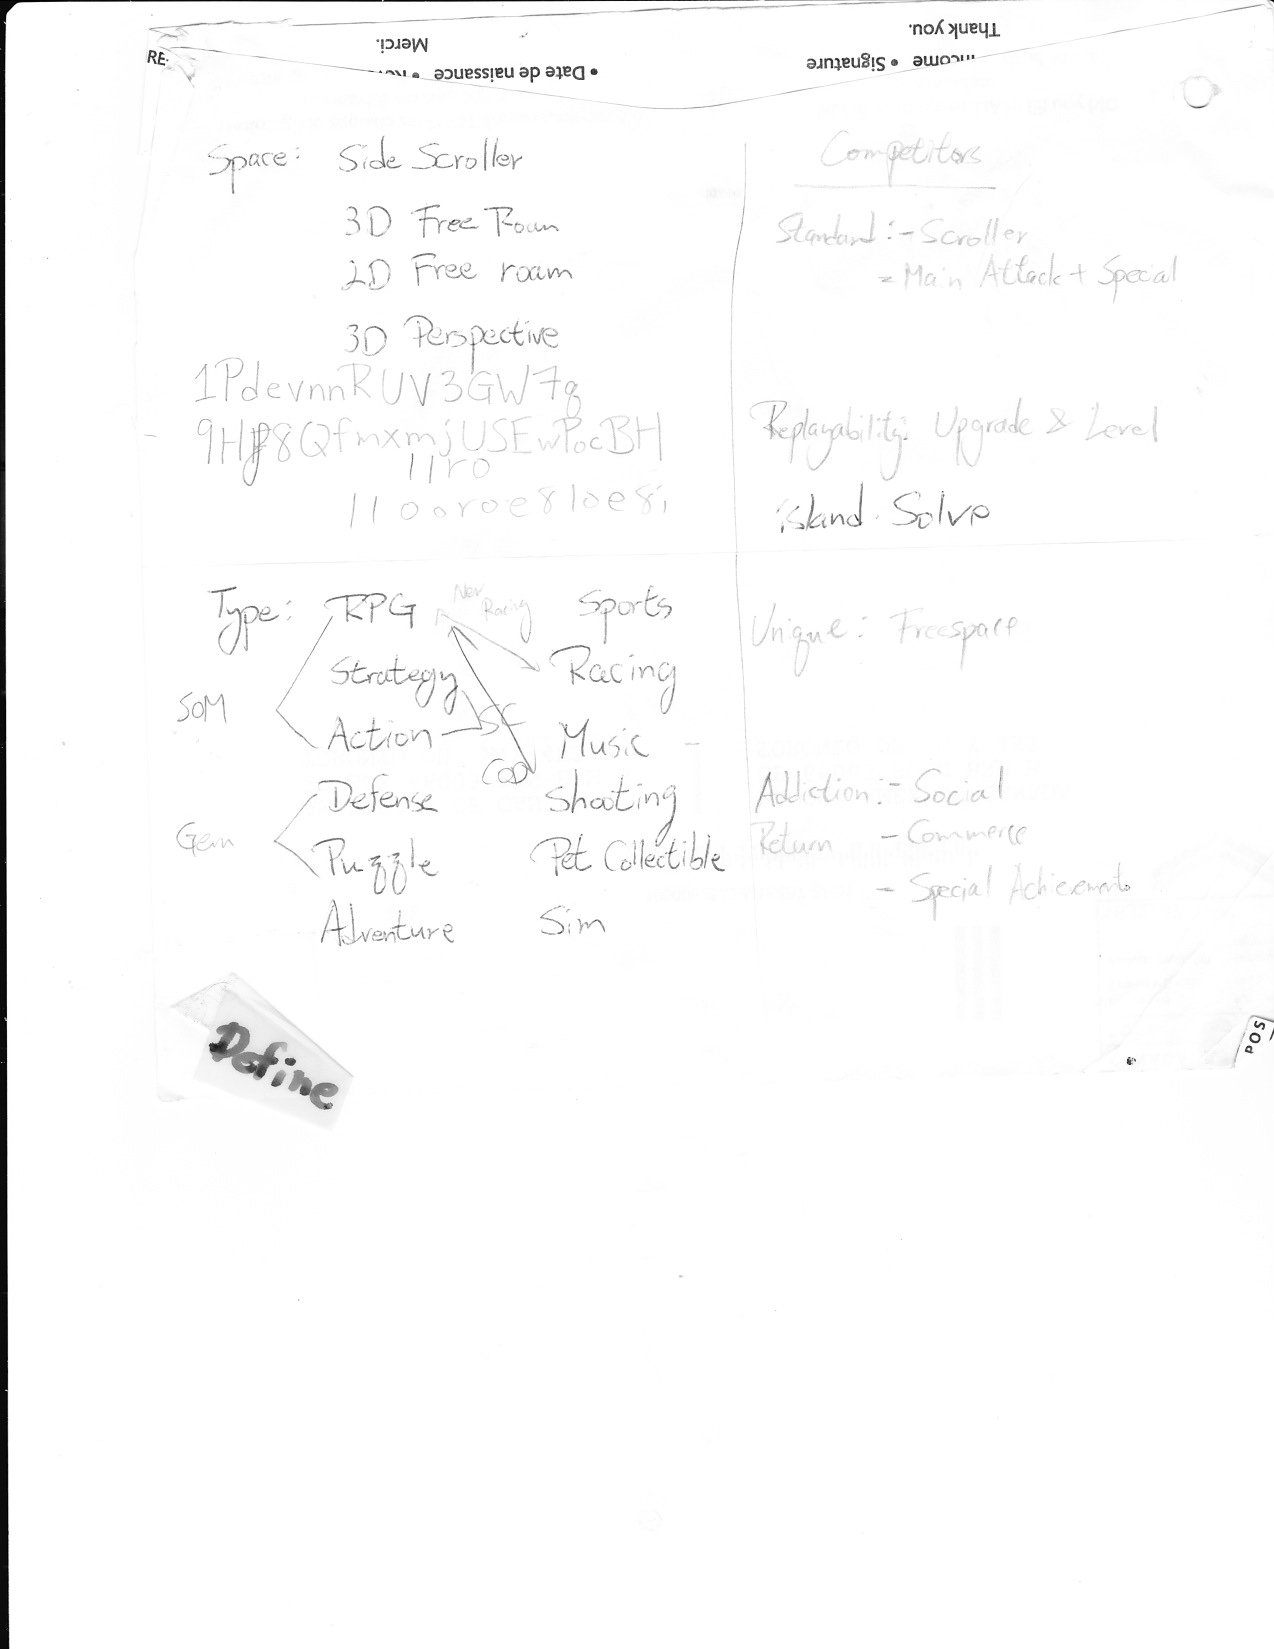 Thank you.
Merci.
• Date de naissance •
• Signature
RE:
Space: Side Scroller
3D Free Roam
2D Free roam
3D Perspective
1PdevnnRUV3GW7q
9Hf8QfmxmjUSEwPocBH
11ro
11ooroe81oe8i
Competitors
Standard: - Scroller
- Main Attack + Special
Replayability: Upgrade & Level
island. Solve
Type: RPG
Strategy
Action
Defense
Puzzle
Adventure
New Racing
SC
COD
SOM
Gem
Sports
Racing
Music -
Shooting
Pet Collectible
Sim
Unique: Freespace
Addiction: - Social
Return - Commerce
- Special Achievements
Define
POS